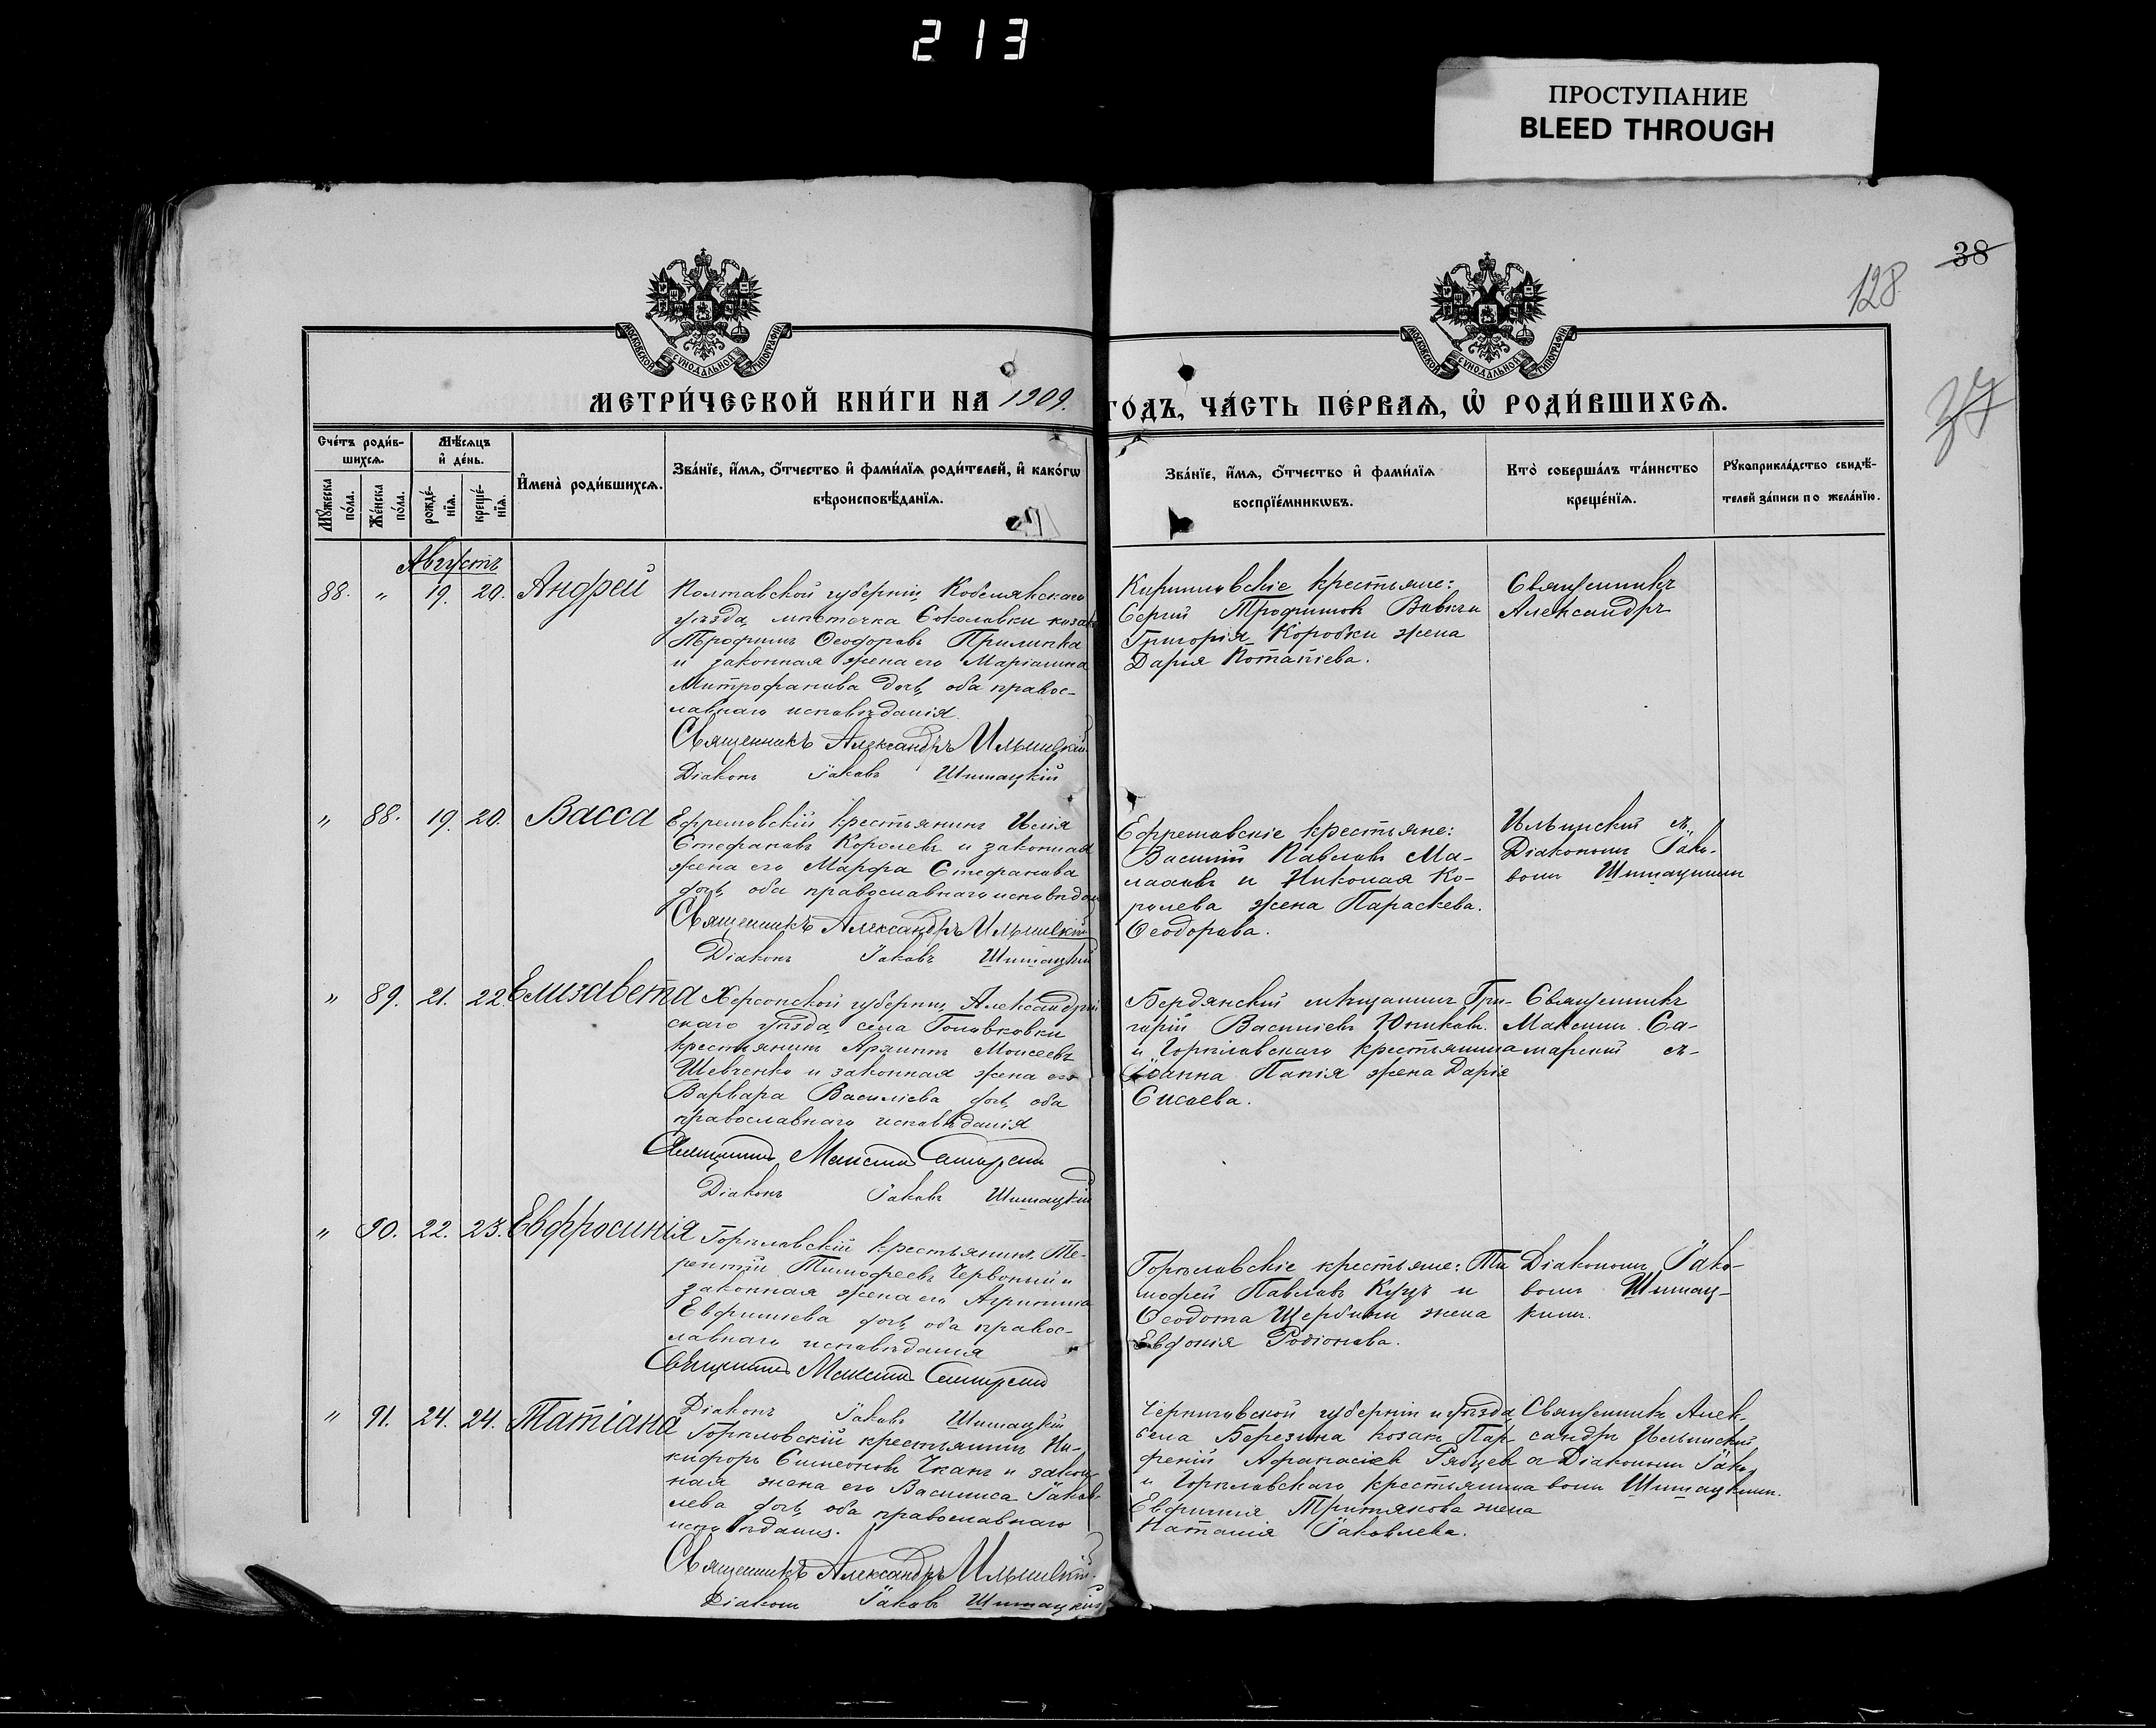 213
ПРОСТУПАНИЕ
BLEED THROUGH
38
128
37
МОСКОВСКОЙ СѴНОДАЛЬНОЙ ТИПОГРАФІИ
МОСКОВСКОЙ СѴНОДАЛЬНОЙ ТИПОГРАФІИ
МЕТРИ́ЧЕСКОЙ КНИ́ГИ НА 1909.
ГО́ДЪ, ЧА́СТЬ ПЕ́РВАѦ, Ѡ҆ РОДИ́ВШИХСѦ.
Сче́тъ роди́в-
шихсѧ.
Мѣ́сѧцъ
и҆ де́нь.
Мꙋ́жеска по́ла.
Же́нска по́ла.
рожде́-нїѧ.
креще́-нїѧ.
И҆мена̀ роди́вшихсѧ.
Зва́нїе, и҆́мѧ, ѻ҆́тчество и҆ фами́лїѧ роди́телей, и҆ како́гѡ
вѣроисповѣ́данїѧ.
Зва́нїе, и҆́мѧ, ѻ҆́тчество и҆ фами́лїѧ
воспрїе́мникѡвъ.
Кто̀ соверша́лъ та́инство
креще́нїѧ.
Рꙋкоприкла́дство свидѣ́-
телей за́писи по жела́нїю.
Августъ
88. „ 19. 20. Андрей
Полтавской губерніи, Кобелякскаго
уѣзда, мѣстечка Соколовки козакъ
Трофимъ Ѳеодоровъ Прилипка
и законная жена его Маріамна
Митрофанова дочь, оба правос-
лавнаго исповѣданія.
Священникъ Александръ Ильинскій
Діаконъ Іаковъ Шишацкій
Кирилловскіе крестьяне:
Сергій Трофимовъ
Григорія Коробки жена
Дарья Потапіева.
Священникъ
Александръ
„ 88. 19. 20. Васса
Ефремовскій крестьянинъ Илія
Стефановъ Королевъ и законная
жена его Марфа Стефанова
дочь, оба православнаго исповѣдан
Священникъ Александръ Ильинскій
Діаконъ Іаковъ Шишацкій
Ефремовскіе крестьяне:
Василій Павловъ Ма-
лаховъ и Николая Ко-
ролева жена Параскева
Ѳеодорова.
Ильинскій съ
Діакономъ Іако-
вомъ Шишацкимъ
„ 89. 21. 22. Елизавета
Херсонской губерніи, Александрій
скаго уѣзда, села Головковки
крестьянинъ Архипъ Моисеевъ
Шевченко и законная жена его
Варвара Василіева дочь, оба
православнаго исповѣданія
Священникъ Максимъ Самарскій
Діаконъ Іаковъ Шишацкій
Бердянскій мѣщанинъ Гри-
горій Василіевъ Юпиковъ
и Горѣловскаго крестьянина
Іоанна Папія жена Дарія
Сисоева.
Священникъ
Максимъ Са-
марскій съ-
„ 90. 22. 23. Евфросинія
Горѣловскій крестьянинъ Те-
рентій Тимофеевъ Червоный и
законная жена его Агрипина
Евфиміева дочь, оба правос-
лавнаго исповѣданія
Священникъ Максимъ Самарскій
Діаконъ Іаковъ Шишацкій
Горѣловскіе крестьяне: Ти
мофей Павловъ Куцъ и
Ѳеодота Щербины жена
Евфонія Родіонова.
Діакономъ Іако-
вомъ Шишац-
кимъ.
„ 91. 24. 24. Татіана
Горѣловскій крестьянинъ Ни-
кифоръ Симеоновъ Чканъ и закон-
ная жена его Василиса Іаков-
лева дочь, оба православнаго
исповѣданія.
Священникъ Александръ Ильинскій
Діаконъ Іаковъ Шишацкій
Черниговской губерніи и уѣзда,
села Березина козакъ Пар-
феній Афанасіевъ Рябцев
и Горѣловскаго крестьянина
Евфимія Третьякова жена
Наталія Іаковлева.
Священникъ Алек-
сандръ Ильинскій
съ Діакономъ Іако
вомъ Шишацкимъ.